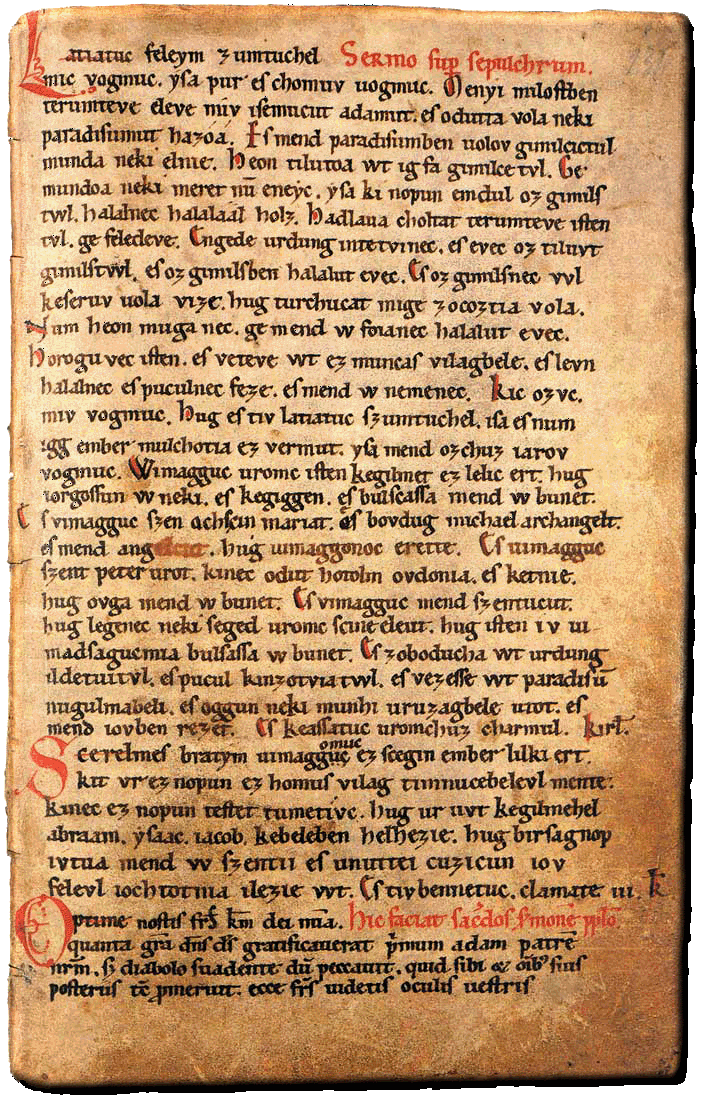 Latiatuc feleym zumtuchel Sermo sup sepulchrum.
mic vogmuc. yſa pur eſ chomuv uogmuc. Menyi miloſtben
terumteve eleve miv iſemucut adamut. eſ odutta vola neki
paradiſumut hazóá. Eſ mend paradiſumben uolov gimilcictul
munda neki elnie. Heon tilutoa wt ig fa gimilce tvl. Ge
mundoa neki meret nū eneyc. yſa ki nopun emdul oz gimilſ
twl. halalnec halalaál holz. Hadlaua choltat terumteve iſten
tvl. ge feledeve. Engede urdung intetvinec. eſ evec oz tiluvt
gimilſtwl. eſ oz gimilſben halalut evec. Eſ oz gimilſnec vvl
keſeruv uola vize. hug turchucat mige zocoztia vola.
Num heon muga nec. ge mend w foianec halalut evec.
Horogu vec iſten. eſ veteve wt ez muncaſ vilagbele. eſ levn
halalnec eſ puculnec feze. eſ mend w nemenec. Kic ozvc.
miv vogmuc. Hug eſ tiv latiatuc ſzumtuchel. iſa eſ num
igg ember mulchotia ez vermut. yſa mend ozchuz iarov
vogmuc. Wimagguc uromc iſten kegilmet ez lelic ert. hug
iorgoſſun w neki. eſ kegiggen. eſ bulſcaſſa mend w bunet.
Eſ vimagguc ſzen achſcin mariat. eſ bovdug michael archangelt.
eſ mend angelcut. hug uimaggonoc erette. Eſ uimagguc
ſzent peter urot. kinec odut hotolm ovdonia. eſ ketnie.
hug ovga mend w bunet. Eſ vimagguc mend ſzentucut.
hug legenec neki ſeged uromc ſcine eleut. hug iſten iv ui
madſagucmia bulſaſſa w bunet. Eſ zoboducha wt urdung
ildetuitvl. eſ pucul kinzotviatwl. eſ vezeſſe wt paradiſū
nugulmabeli. eſ oggun neki munhi uruzagbele utot. eſ
mend iovben rezet. Eſ keaſſatuc uromchuz charmul. Kirl.
Scerelmeſ bratym uimagguc omuc ez ſcegin ember lilki ert.
kit vr ez nopun ez homuſ vilag timnucebelevl mente.
kinec ez nopun teſtet tumetivc. hug ur uvt kegilmehel
abraam. yſaac. iacob. kebeleben helhezie. hug birſagnop
ivtua mend w ſzentii eſ unuttei cuzicun iov
felevl iochtotnia ilezie wt. Eſ tivbennetuc. clamate iii. K
Optime noſtiſ frſ km dei mia. Hic faciat ſacdoſ ſmonē pplo
quanta gra dnſ dſ gratificauerat pmum adam patrē
nrm. ſz diabolo ſuadente dū peccauit. quid ſibi & oīb' ſuiſ
poſteriſ tē pmeruit. ecce frſ uidetiſ oculiſ ueſtriſ